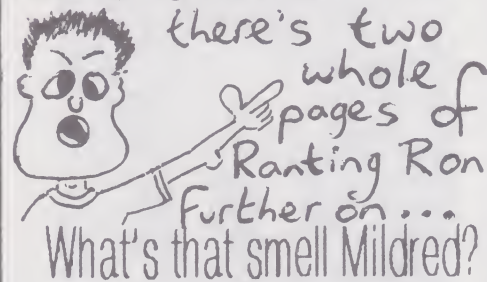 there's two
whole
pages of
Ranting Ron
further on...
What's that smell Mildred?